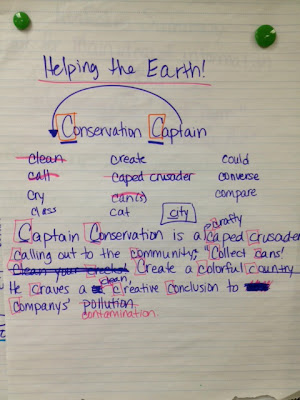 Helping the Earth!
Conservation Captain
clean create could
call caped crusader converse
cry can(s) compare
class cat city
crafty
Captain Conservation is a caped crusader
calling out to the community; "Collect cans!
Clean your Create a colorful country
clean,
He craves a creative conclusion to
companys' pollution
contamination.